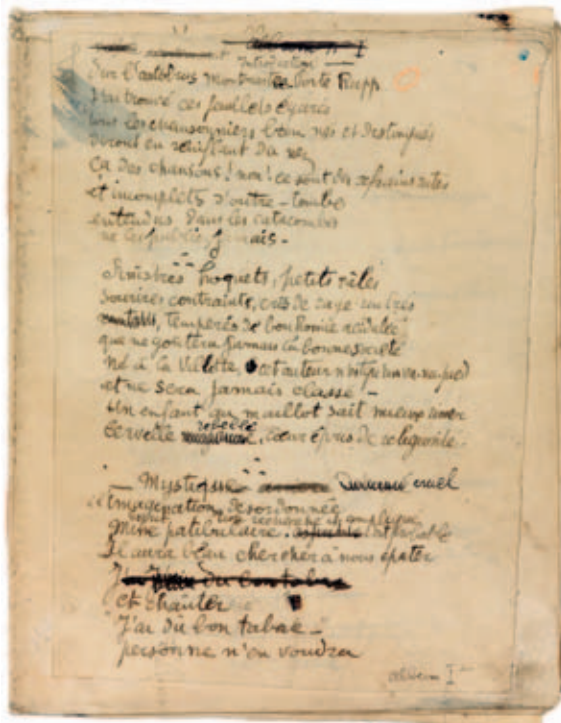 Introduction —
Sur l'autobus Montmartre Porte Rapp
J'ai trouvé ces feuillets égarés
Tous les chansonniers bien nés et distingués
diront en reniflant du nez
ça des chansons! non! ce sont des refrains ratés
et incomplets d'outre-tombe
entendus dans les catacombes
ne les publiez jamais -
Sinistres hoquets, petits râles
sourires contraints, cris de rage
, tempérés de bonhomie acidulée
que ne goûtera jamais la bonne société
Né à la Villette, cet auteur n'est qu'un
et ne sera jamais classé -
Un enfant au maillot sait mieux rimer
Cervelle rebelle, cœur épris de
— Mystique cruel
imagination désordonnée
Mine patibulaire.
Il aura beau chercher à nous épater
J'ai du bon tabac
et chanter
"J'ai du bon tabac -
personne n'en voudra
album I